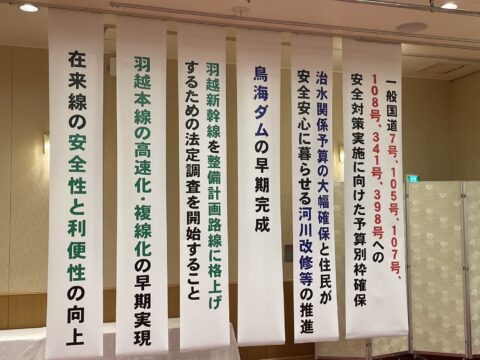 一般国道7号、105号、107号、
108号、341号、398号への
安全対策実施に向けた予算別枠確保
治水関係予算の大幅確保と住民が
安全安心に暮らせる河川改修等の推進
鳥海ダムの早期完成
羽越新幹線を整備計画路線に格上げ
するための法定調査を開始すること
羽越本線の高速化・複線化の早期実現
在来線の安全性と利便性の向上